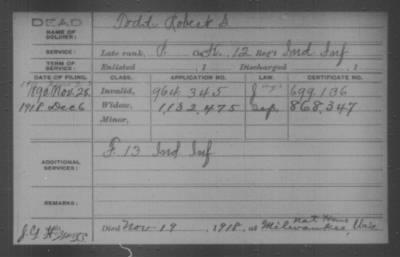 DEAD
NAME OF SOLDIER:
Todd Robert S
SERVICE:
Late rank, P Co. K, 12 Reg't Ind Inf
TERM OF SERVICE:
Enlisted 1 Discharged 1
DATE OF FILING. CLASS. APPLICATION NO. LAW. CERTIFICATE NO.
1890 Nov. 28 Invalid, 964.345 699.136
1918 Dec 6 Widow, 1,132,475 Sep. 868,347
Minor,
ADDITIONAL SERVICES:
F. 13 Ind Inf
REMARKS:
nat Home
Died Nov 19, 1918, at Milwaukee, Wis